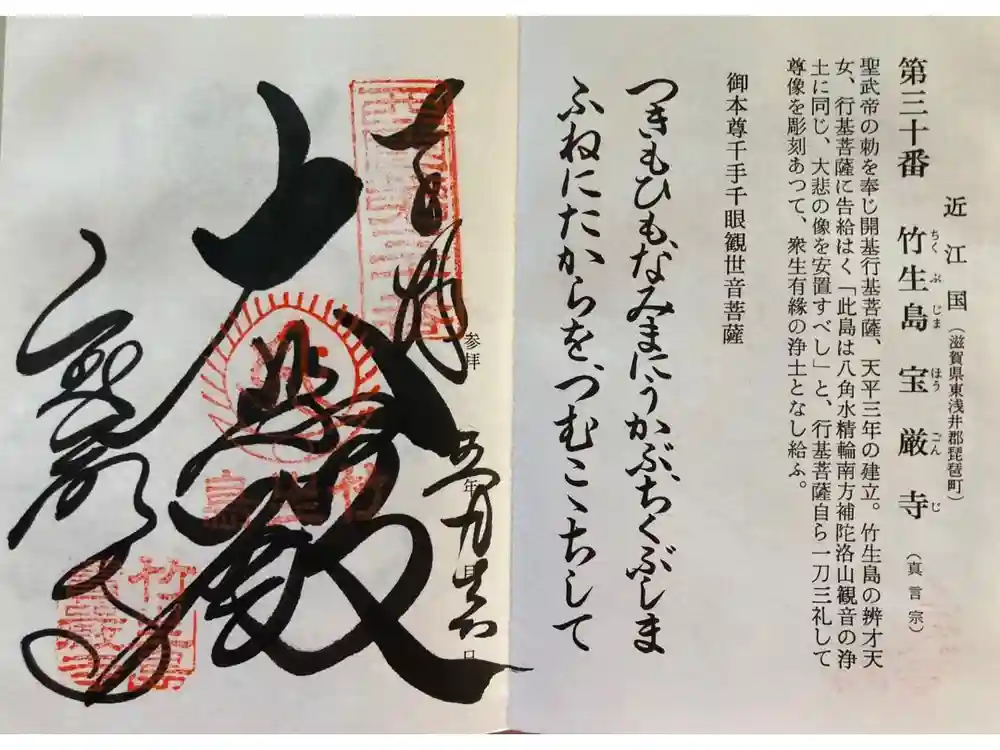 近江国（滋賀県東浅井郡琵琶町）
第三十番 竹生島宝厳寺（真言宗）
ちくぶじまほうごんじ
聖武帝の勅を奉じ開基行基菩薩、天平三年の建立。竹生島の辨才天
女、行基菩薩に告給はく「此島は八角水精輪南方補陀洛山観音の浄
土に同じ、大悲の像を安置すべし」と、行基菩薩自ら一刀三礼して
尊像を彫刻あつて、衆生有縁の浄土となし給ふ。
御本尊千手千眼観世音菩薩
つきもひも、なみまにうかぶ、ちくぶしま
ふねにたからを、つむこゝちして
参拝
年
月
日
大悲殿
竹生島